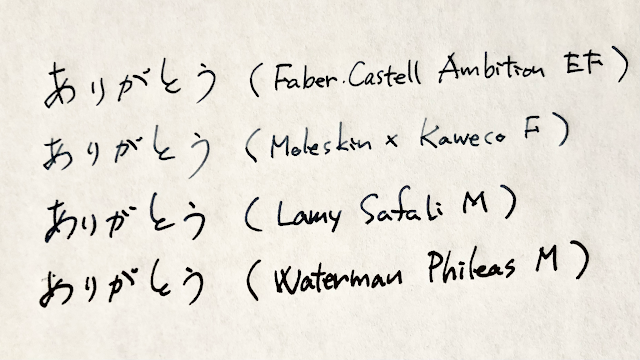 ありがとう (Faber.Castell Ambition EF)
ありがとう (Moleskin x Kaweco F)
ありがとう (Lamy Safali M)
ありがとう (Waterman Phileas M)